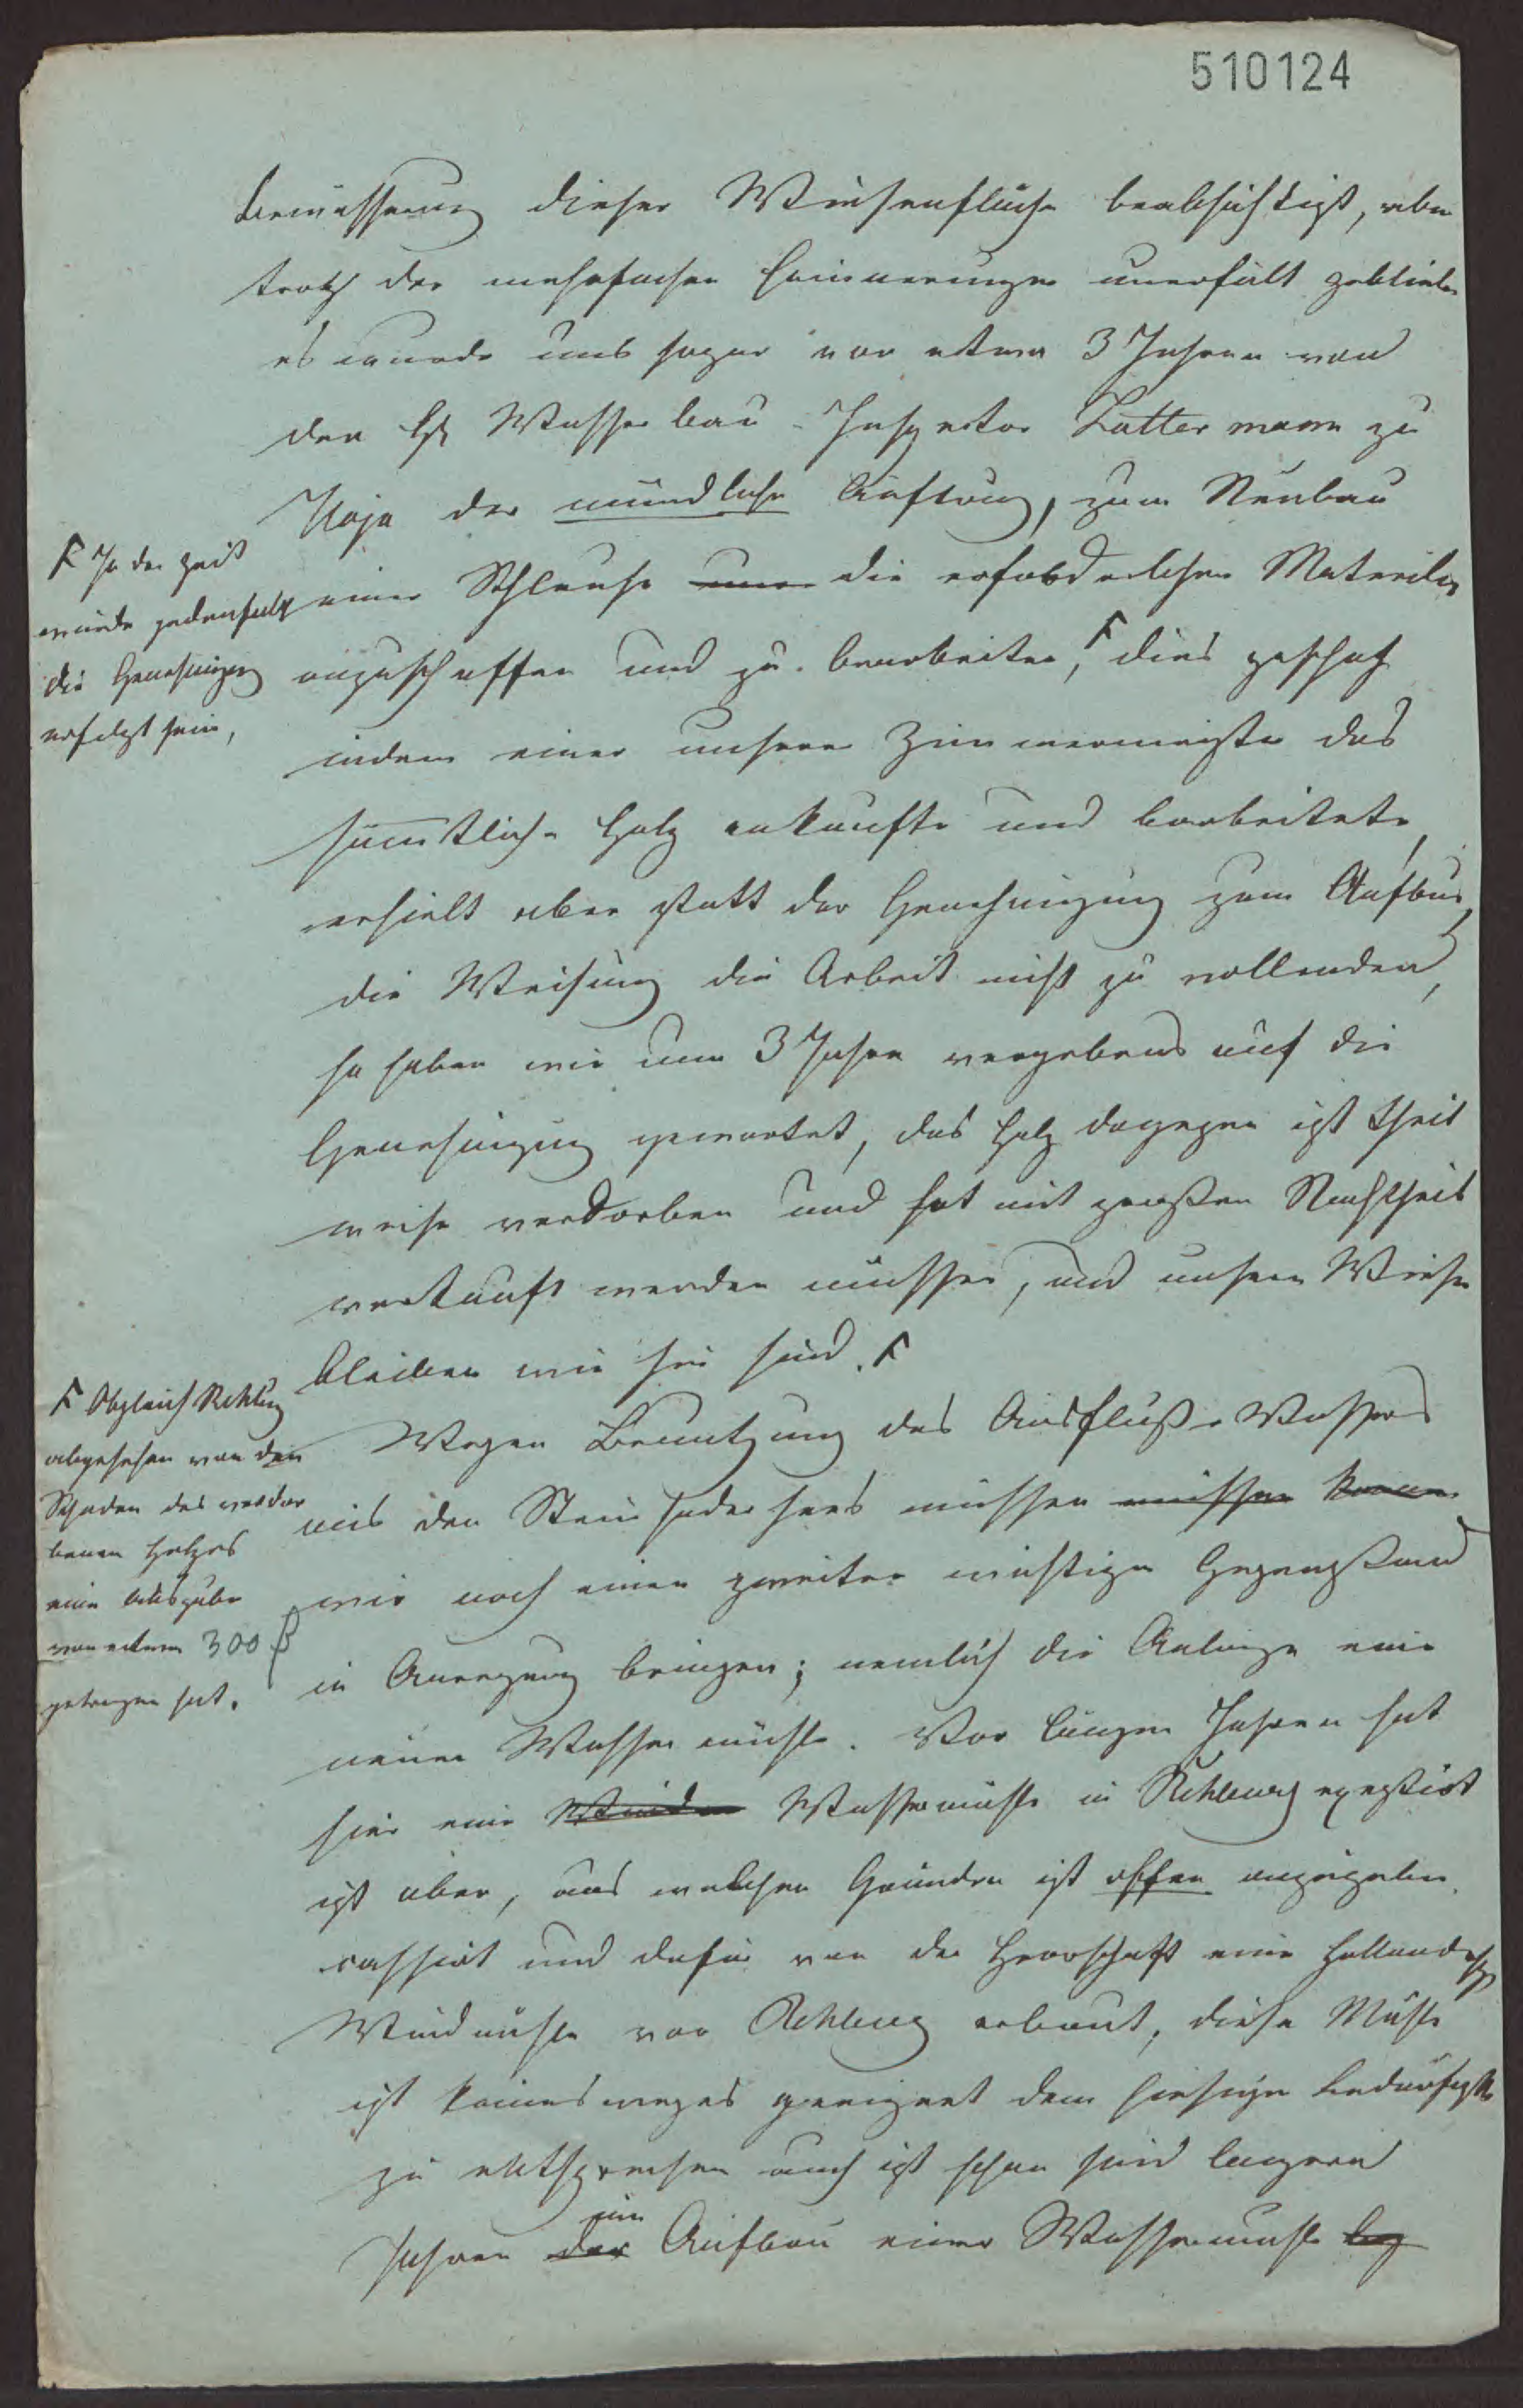 510124
Bewässerung dieser Wiesenfläche beabsichtigt, aber
trotz der mehrfachen Erinnerungen unerfült geblieben
es wurde uns sogar vor etwa 3 Jahren von
den H Wasserbau-Inspector Luttermann zu
Hoya der mündliche Auftrag, zum Neubau
einer Schleuse die erforderlichen Materialien
anzuschaffen und zu bearbeiten, F dies geschah
indem einer unserer Zimmermeister das
sämtliche Holz ankaufte und bearbeitete,
erhielt aber statt der Genehmigung zum Aufbau,
die Weisung die Arbeit nicht zu vollenden,
so haben wir nun 3 Jahre vergebens auf die
Genehmigung gewartet, das Holz dagegen ist theil
weise verdorben und hat mit großen Nachtheil
verkauft werden müssen, und unsere Wiesen
bleiben wie sie sind. F
Wegen Benutzung des Ausfluße Wassers
aus den Steinhudersees müssen müssen
wir noch einen zweiten wichtigen Gegenstand
in Anregung bringen; nemlich die Anlage eine
neuen Wassermühle. Vor langen Jahren hat
hier eine Wassermühle in Rehburg existirt
ist aber, aus welchen Gründen ist angegeben
cassirt und dafür von der Herrschaft eine Holländische
Windmühle vor Rehburg erbaut, diese Mühle
ist keinesweges geeignet dem hiesigen Bedürfniße
zu entsprechen auch ist schon seid langern
Jahren der um Aufbau einer Wassermühle
F In der Zeit
würde jedenfals
die Genehmigung
erfolgt sein,
F Obgleich Rehburg
abgesehen von den
Schaden des verdor
benen Holzes
eine Ausgabe
von etwa 300
getragen hat.